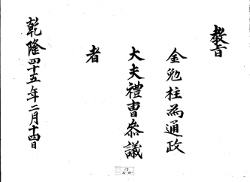 教旨
金勉柱為通政
大夫禮曹參議
者
乾隆四十五年二月十四日